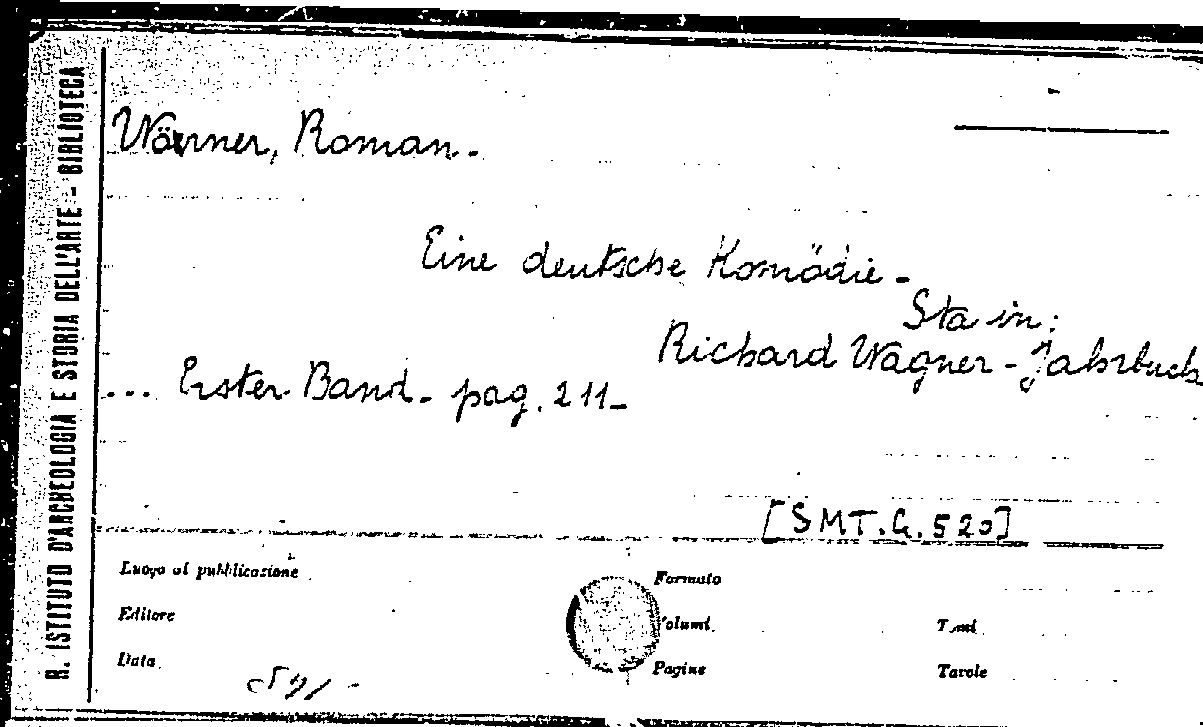 R. ISTITUTO D'ARCHEOLOGIA E STORIA DELL'ARTE - BIBLIOTECA
Wörner, Roman.-
Eine deutsche Komödie-
Sta in:
Richard Wagner-Jahrbuch
... Erster Band- pag. 211-
[SMT.G.520]
Luogo di pubblicazione
Formato
Editore
Volumi
Tomi
Data
Pagine
Tavole